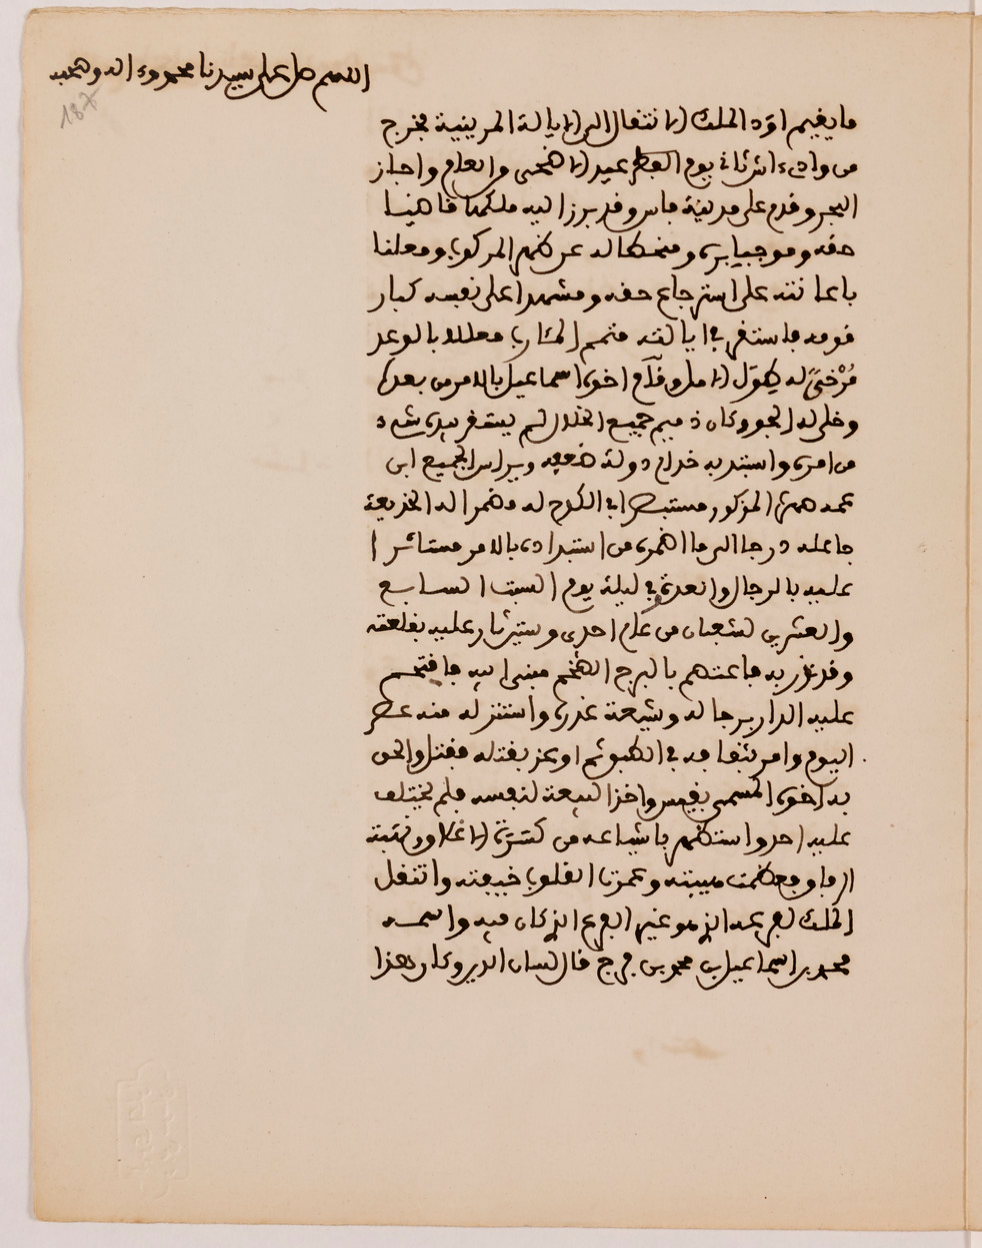 اللهم صل على سيدنا محمد وءاله وصحبه
187
ما يقيم اوَد الملك الانتقال الى الايالة المرينية فخرج
من وادي ءاش ثاني يوم الفطر عيد الاضحى والعام واجاز
البحر وقدم على مدينة فاس وقد برز اليه ملكها قاضيا
حقه وموجبا بره ومنحطا له عن ظهر المركوب ومعلنا
باعانته على استرجاع حقه ومشهدا على نفسه كبار
قومه فاستقر في ايالته متمم المئارب معللا بالوعد
مُرْخىً له طِوَل الامل وقام اخوه اسماعيل بالامر من بعده
وخلى له الجو وكان ذميم جميع الخلال لم يستقر بيده شيء
من امره واستبد به خدام دولة ضعفه ويراس الجميع ابن
عمه صهره المذكور مستبصرا في الكدح له مضمرا له الخديعة
جاعله درجا الى ما اضمره من استبداده بالامر مستاثرا
عليه بالرجال والعدة في ليلة يوم السبت السابع
والعشرين لشعبان من عام احدى وستين ثار عليه بقلعته
وقد غدر به جاعتهم بالبرج الضخم مبنى ابيه فاقتحم
عليه الدار برجاله وشيعة غدره واستنزله منه عصر
اليوم وامر بثقافه في الطبق ثم اوعز بقتله فقتل والحق
به اخوه المسمى بقيس واخذ البيعة لنفسه فلم يختلف
عليه احد واستظهر باشياعه من كشرة الاغلا وذئبة
الرفاق فعظمت هيبته وعمرت القلوب خيفته وانتقل
الملك لفرع عمه الذي هو غير الفرع الذي كان فيه واسمه
محمد بن اسماعيل بن محمد بن فرج قال لسان الدين وكان هذا